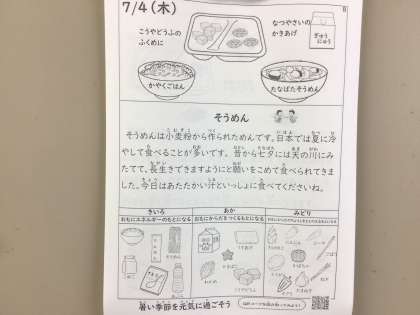 7/4(木)
8
こうやどうふの
ふくめに
なつやさいの
かきあげ
ぎゅう
にゅう
かやくごはん
たなばたそうめん
そうめん
そうめんは小麦粉から作られためんです。日本では夏に冷
やして食べることが多いです。昔から七夕には天の川にみ
たてて、長生きできますようにと願いをこめて食べられてきま
した。今日はあたたかい汁といっしょに食べてくださいね。
きいろ
あか
みどり
おもにエネルギーのもとになる
おもにからだをつくるもとになる
暑い季節を元気に過ごそう